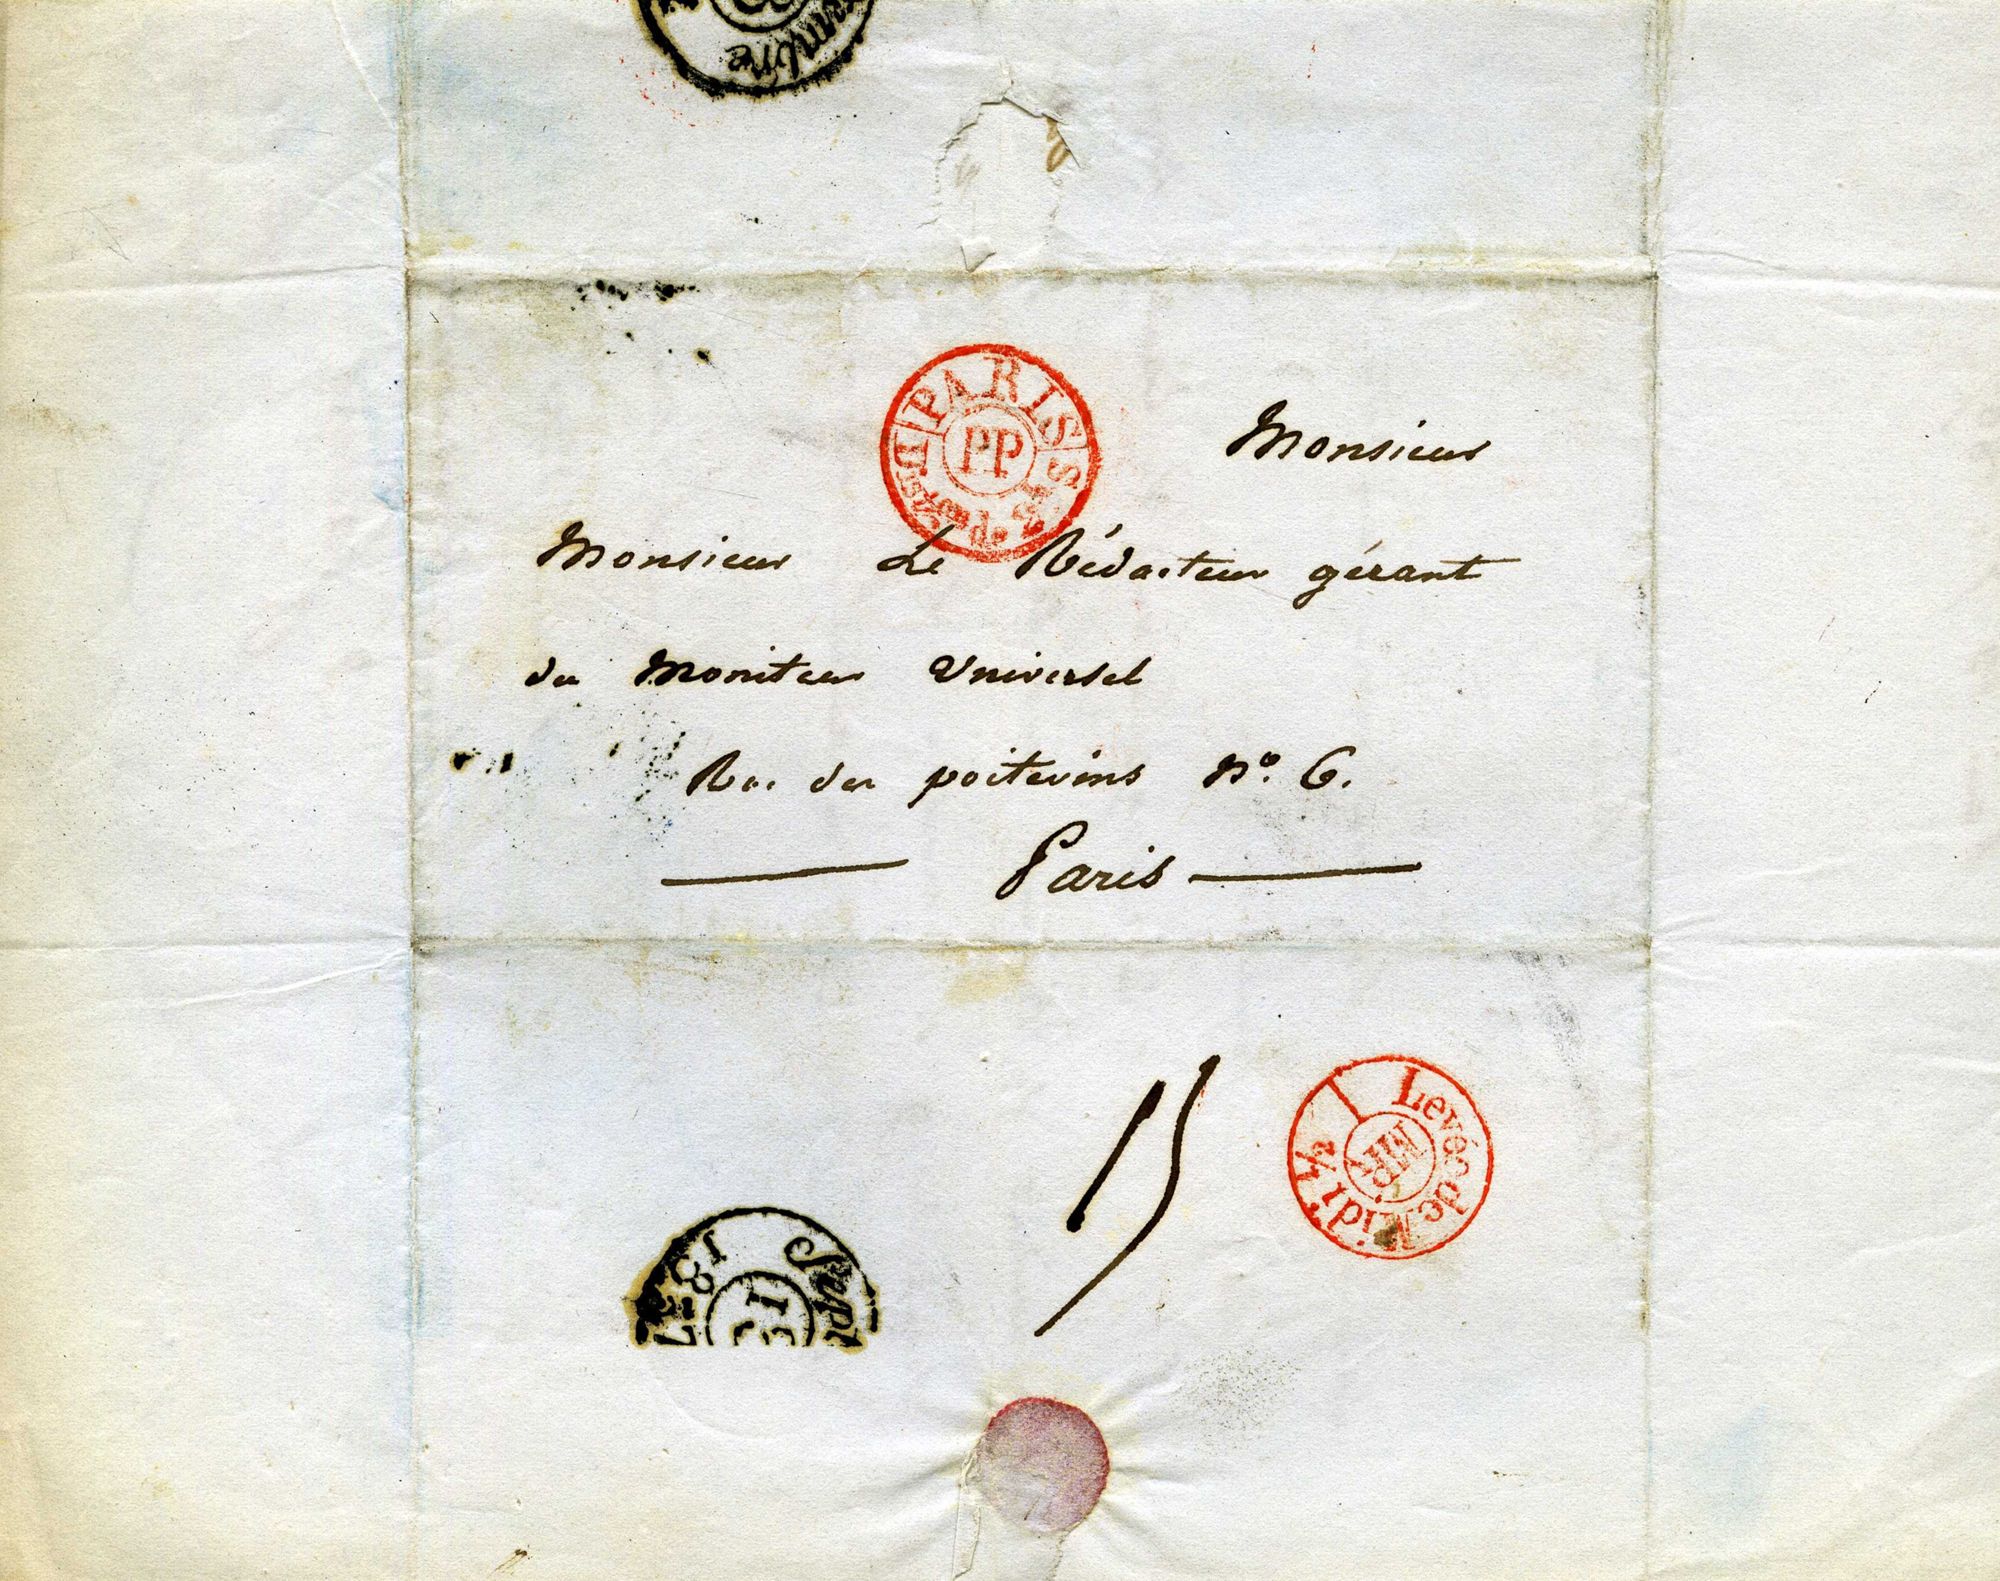 PARIS
PP
Monsieur
Monsieur Le Rédacteur gérant
du Moniteur Universel
Rue des poitevins N° 6.
Paris
15
Levée de Midi ½